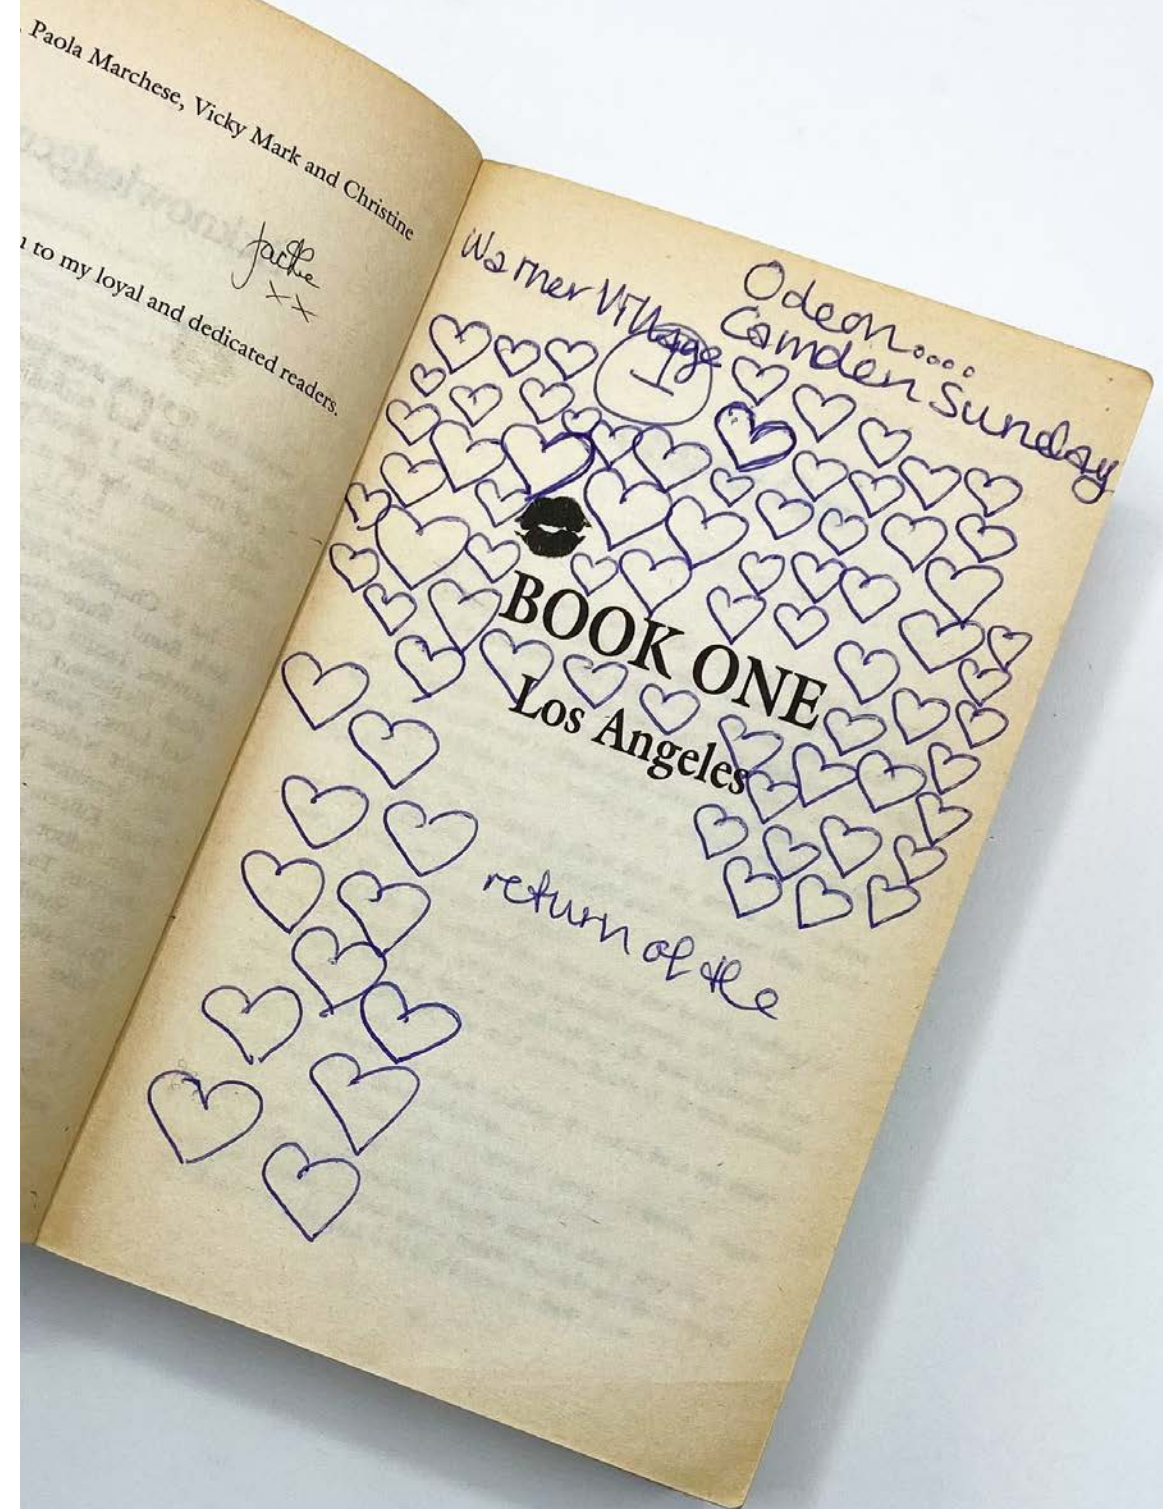 Paola Marchese, Vicky Mark and Christine
to my loyal and dedicated readers.
Jackie
xx
Warner Village
Odeon....
Camden Sunday
BOOK ONE
Los Angeles
return of the